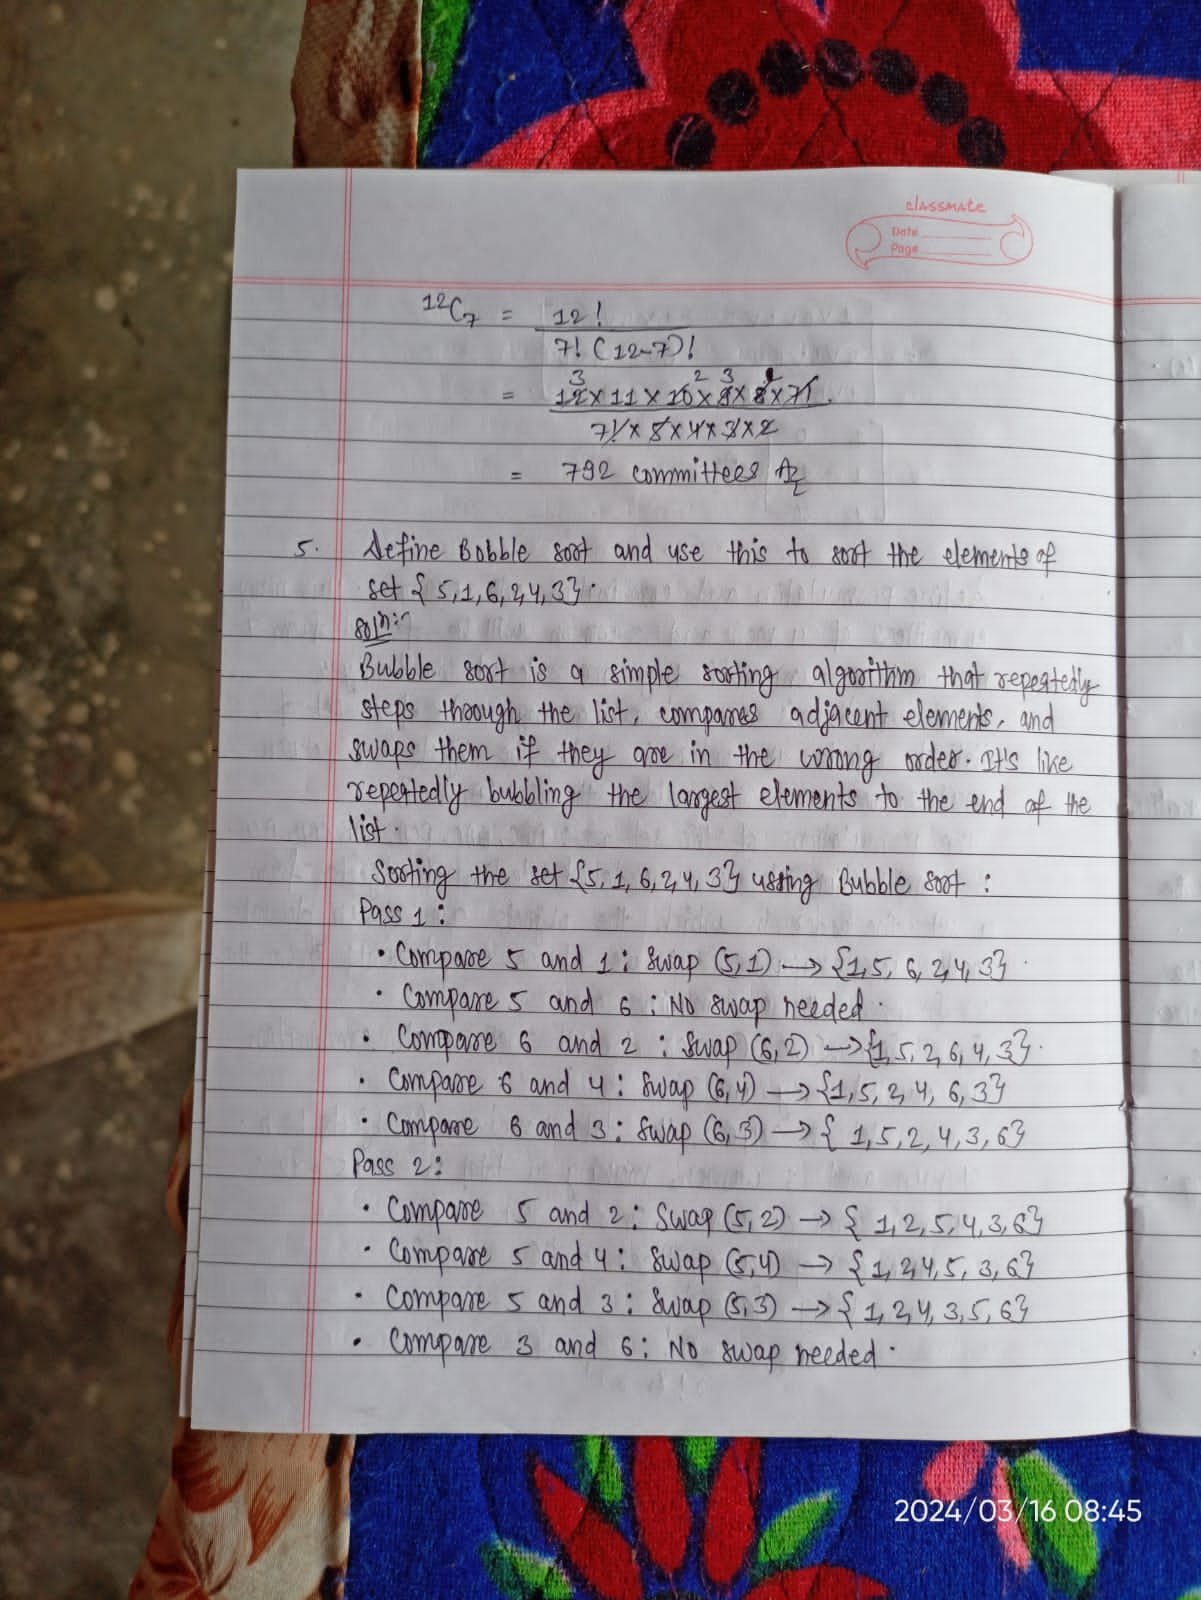 classmate
Date
Page
12C7 = 12!
7! (12-7)!
3 2 3 2
= 12 x 11 x 10 x 9 x 8 x 7!
7! x 5 x 4 x 3 x 2
= 792 committees
5. Define Bobble sort and use this to sort the elements of
set { 5, 1, 6, 2, 4, 3}.
Soln:-
Bubble sort is a simple sorting algorithm that repeatedly
steps through the list, compares adjacent elements, and
swaps them if they are in the wrong order. It's like
repeatedly bubbling the largest elements to the end of the
list.
Sorting the set {5, 1, 6, 2, 4, 3} using Bubble sort :
Pass 1 :
• Compare 5 and 1 : Swap (5, 1) → {1, 5, 6, 2, 4, 3}
• Compare 5 and 6 : No swap needed.
• Compare 6 and 2 : Swap (6, 2) → {1, 5, 2, 6, 4, 3}.
• Compare 6 and 4 : Swap (6, 4) → {1, 5, 2, 4, 6, 3}
• Compare 6 and 3 : Swap (6, 3) → { 1, 5, 2, 4, 3, 6}
Pass 2 :
• Compare 5 and 2 : Swap (5, 2) → { 1, 2, 5, 4, 3, 6}
• Compare 5 and 4 : Swap (5, 4) → { 1, 2, 4, 5, 3, 6}
• Compare 5 and 3 : Swap (5, 3) → { 1, 2, 4, 3, 5, 6}
• Compare 3 and 6 : No swap needed.
2024/03/16 08:45